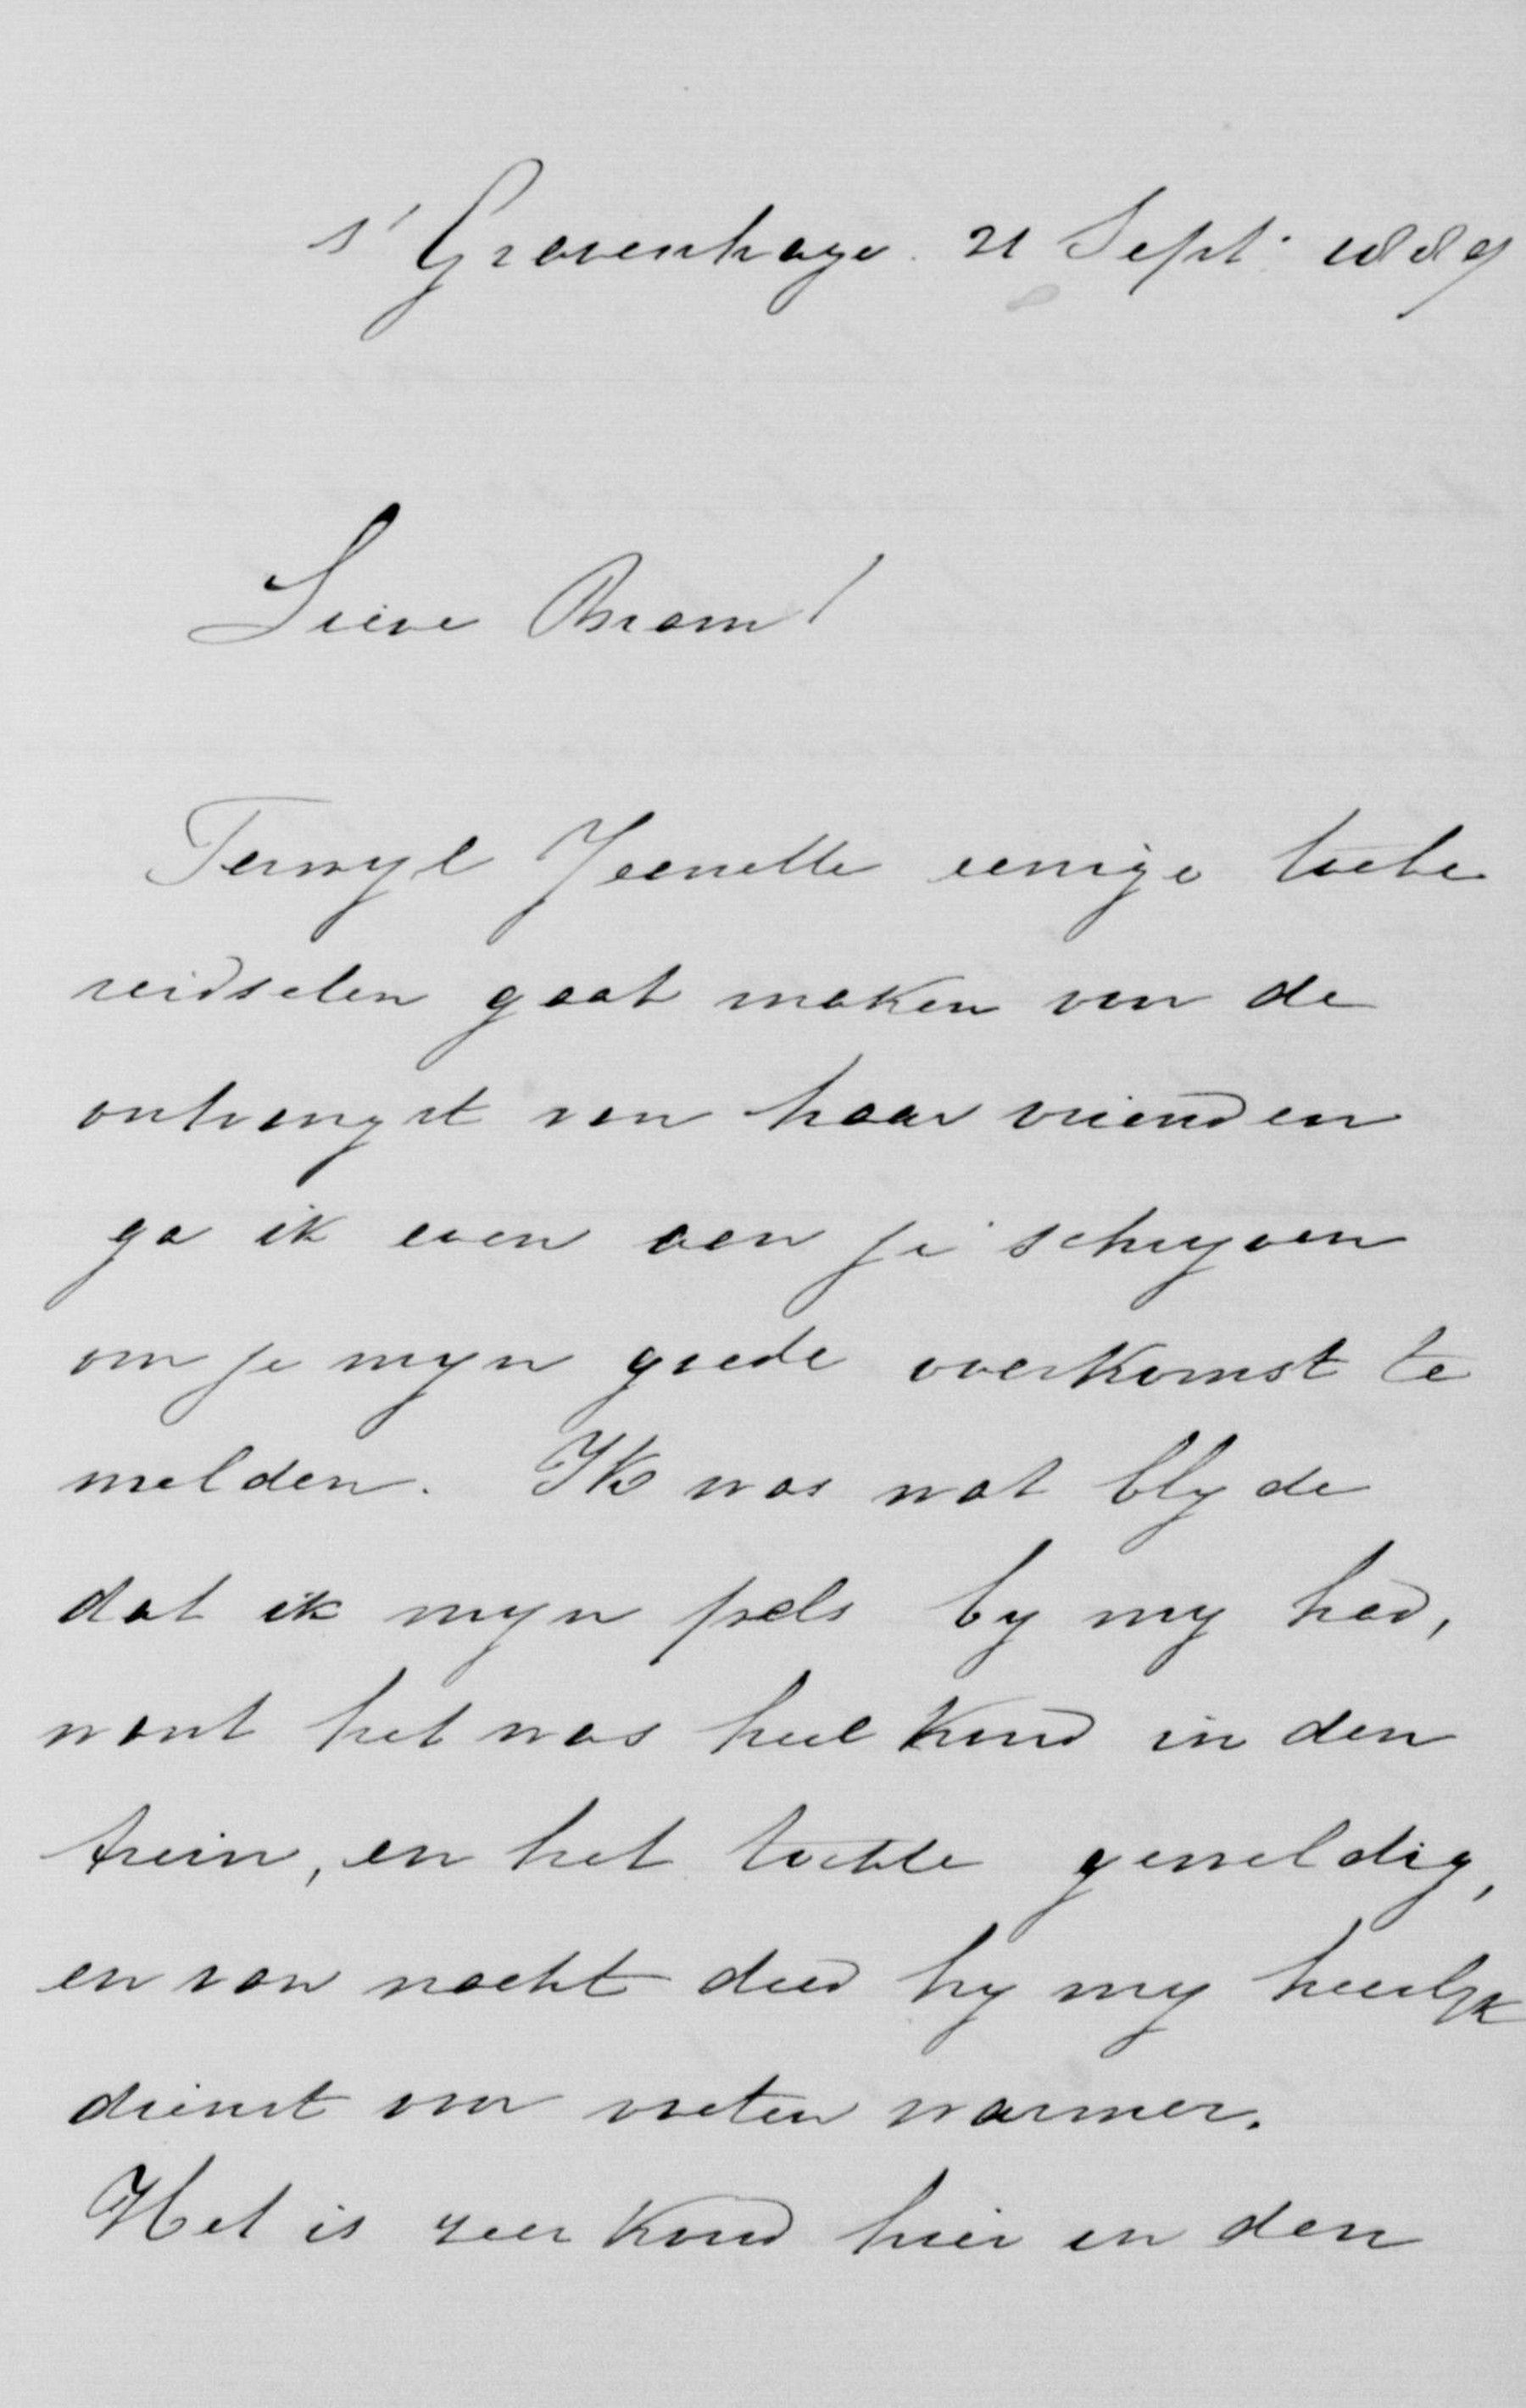 s' Gravenhage. 21 Sept. 1889
Lieve Bram!
Terwyl Jeanette eenige toebe
reidselen gaat maken voor de
ontvangst van haar vrienden
ga ik even aen je schryven
om je myn goede overkomst te
melden. Ik was wat blyde
dat ik myn pels by my had,
want het was heel koud in den
trein, en het tochte geweldig,
en van nacht deed hy my heerlyk
dienst voor voeten warmer.
Het is zeer koud hier en den